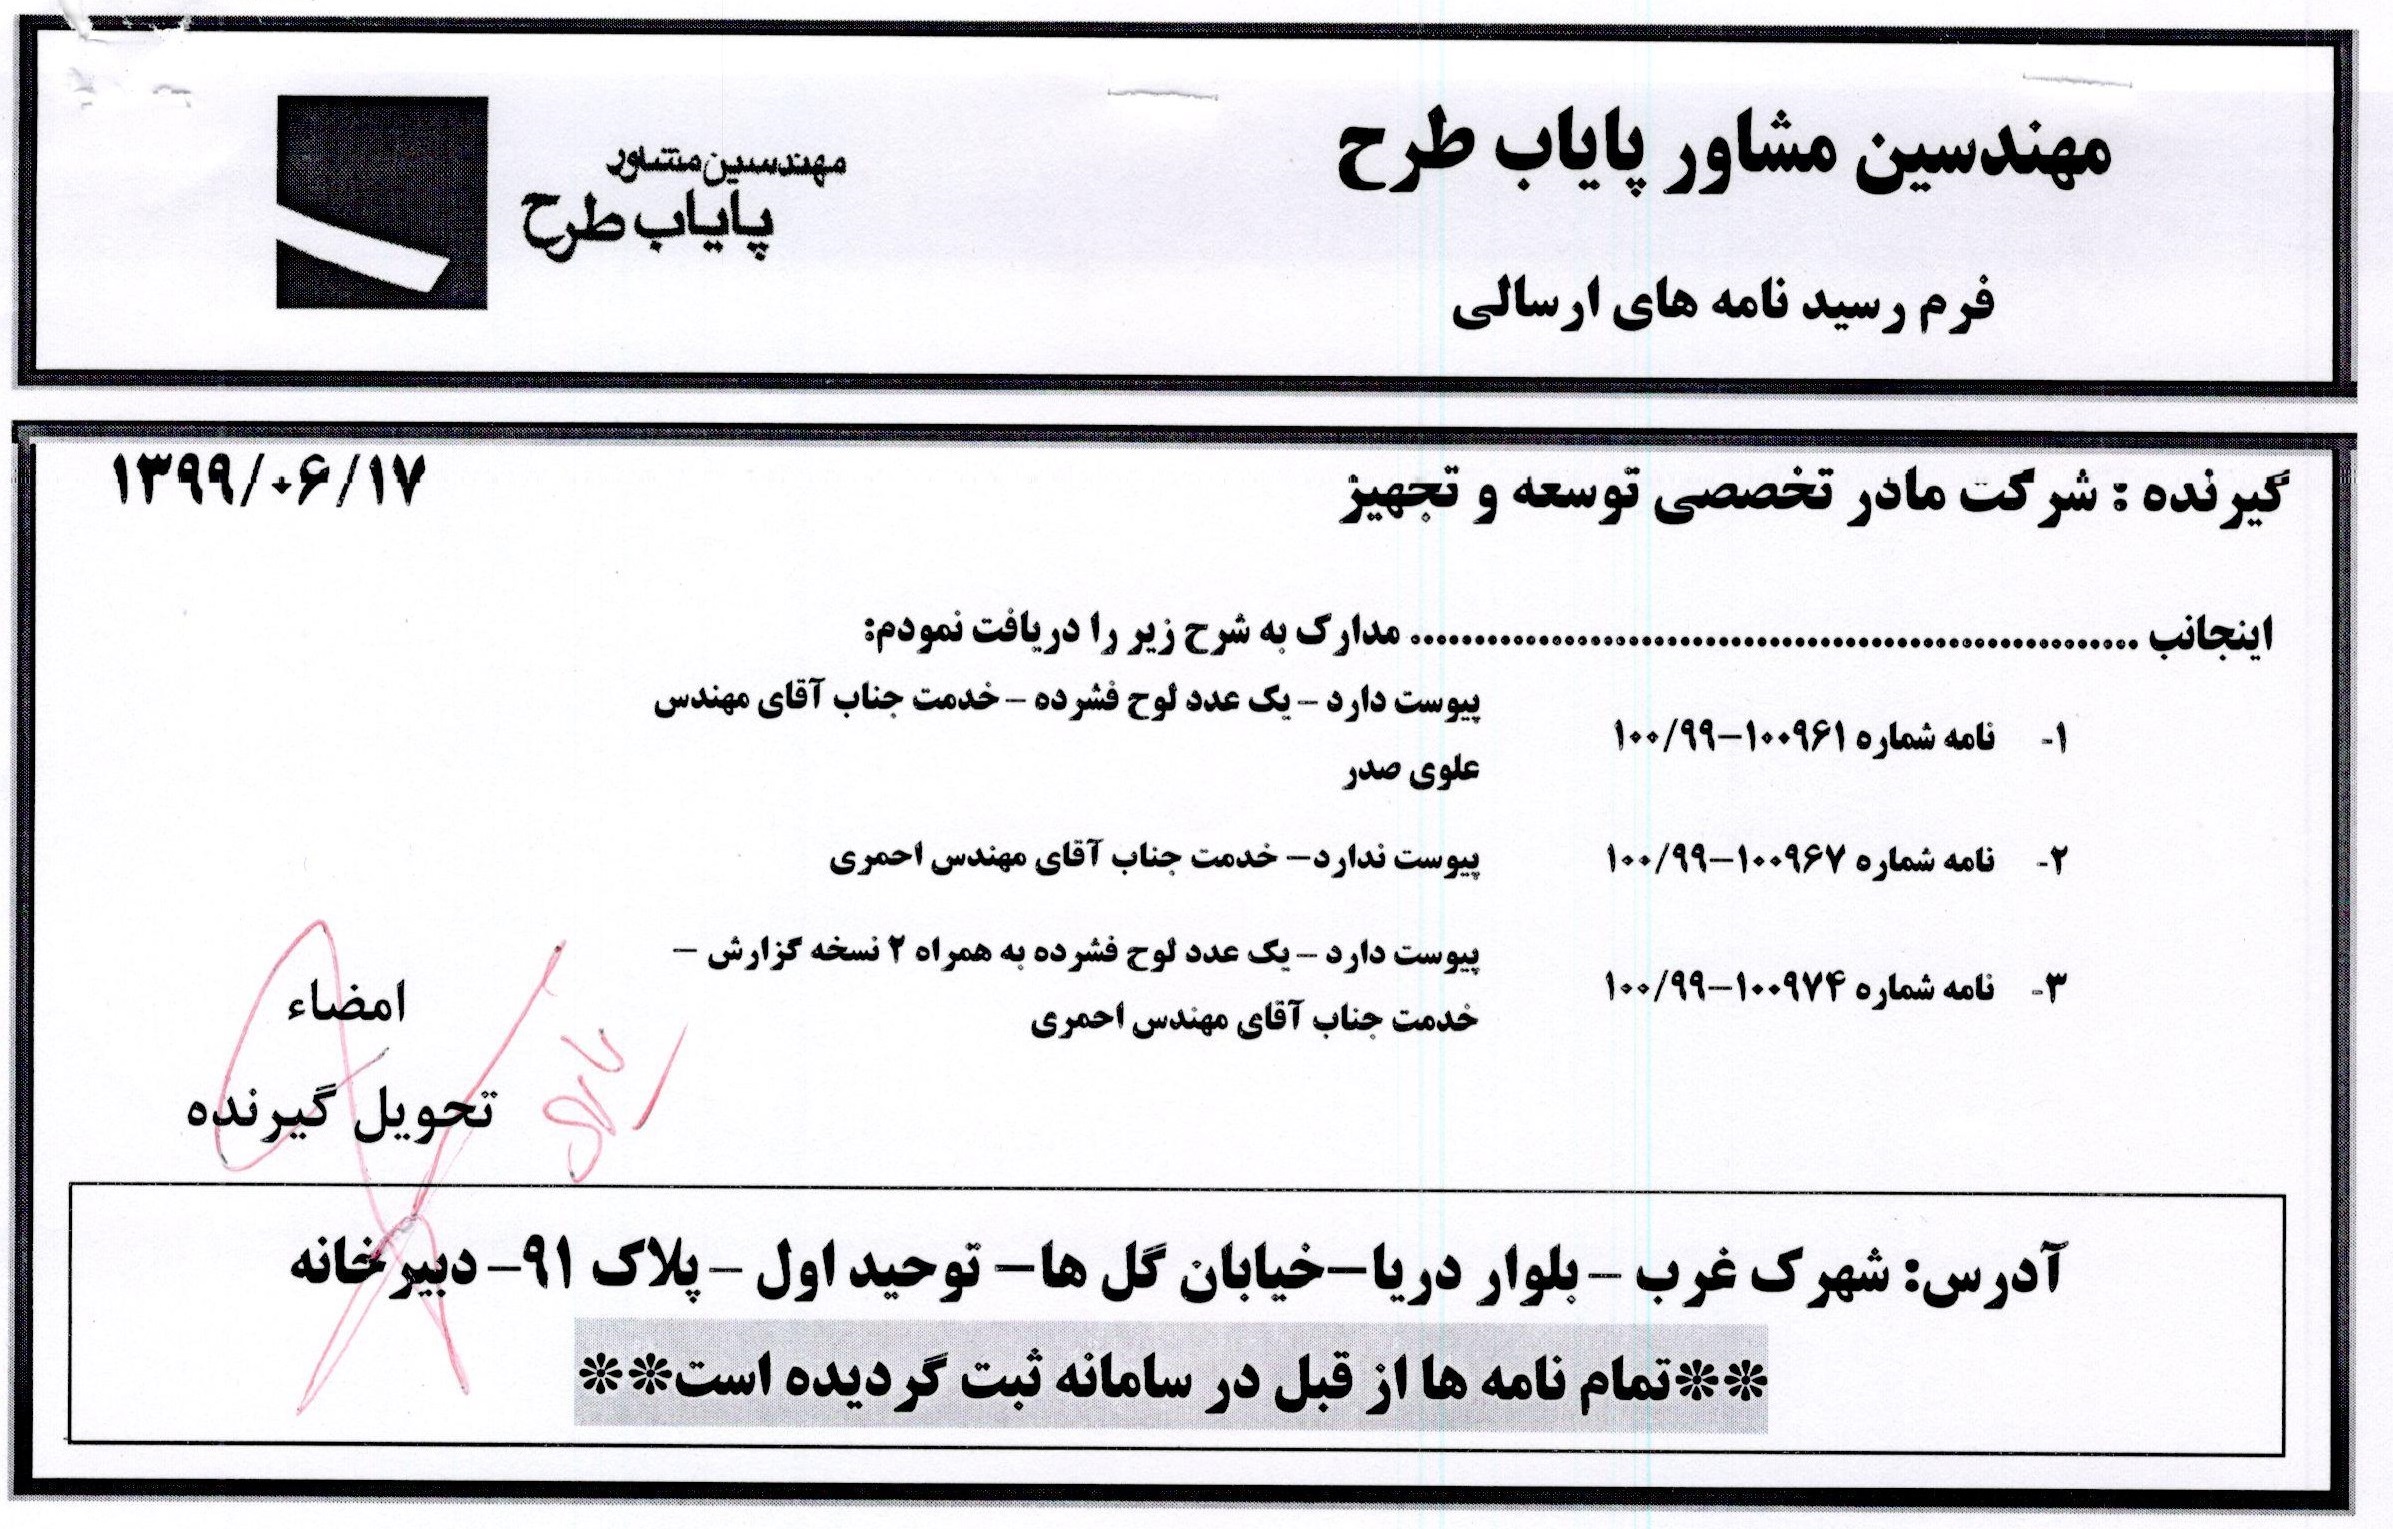 مهندسین مشاور پایاب طرح
مهندسین مشاور
پایاب طرح
فرم رسید نامه های ارسالی
گیرنده : شرکت مادر تخصصی توسعه و تجهیز
۱۳۹۹/۰۶/۱۷
اینجانب ........................................................ مدارک به شرح زیر را دریافت نمودم:
۱- نامه شماره ۱۰۰۹۶۱-۱۰۰/۹۹
پیوست دارد – یک عدد لوح فشرده – خدمت جناب آقای مهندس
علوی صدر
۲- نامه شماره ۱۰۰۹۶۷-۱۰۰/۹۹
پیوست ندارد – خدمت جناب آقای مهندس احمری
۳- نامه شماره ۱۰۰۹۷۴-۱۰۰/۹۹
پیوست دارد – یک عدد لوح فشرده به همراه ۲ نسخه گزارش –
خدمت جناب آقای مهندس احمری
امضاء
تحویل گیرنده
آدرس: شهرک غرب – بلوار دریا – خیابان گل ها – توحید اول – پلاک ۹۱ – دبیرخانه
**تمام نامه ها از قبل در سامانه ثبت گردیده است**